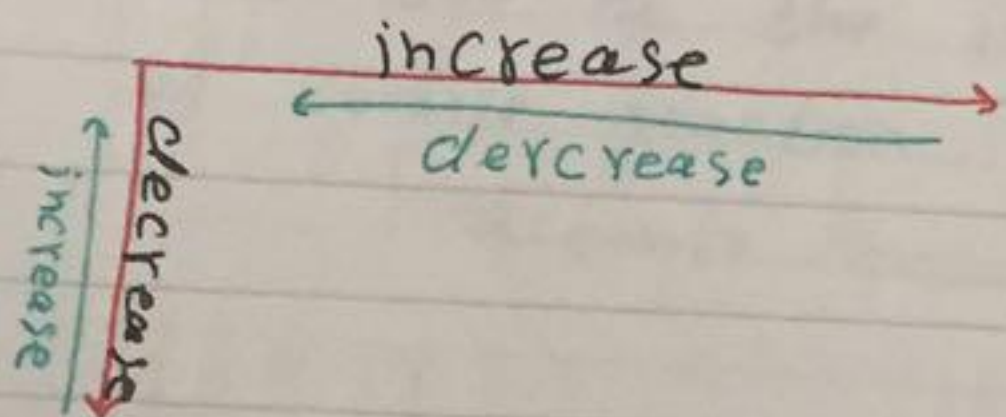 increase
dercrease
decrease
increase